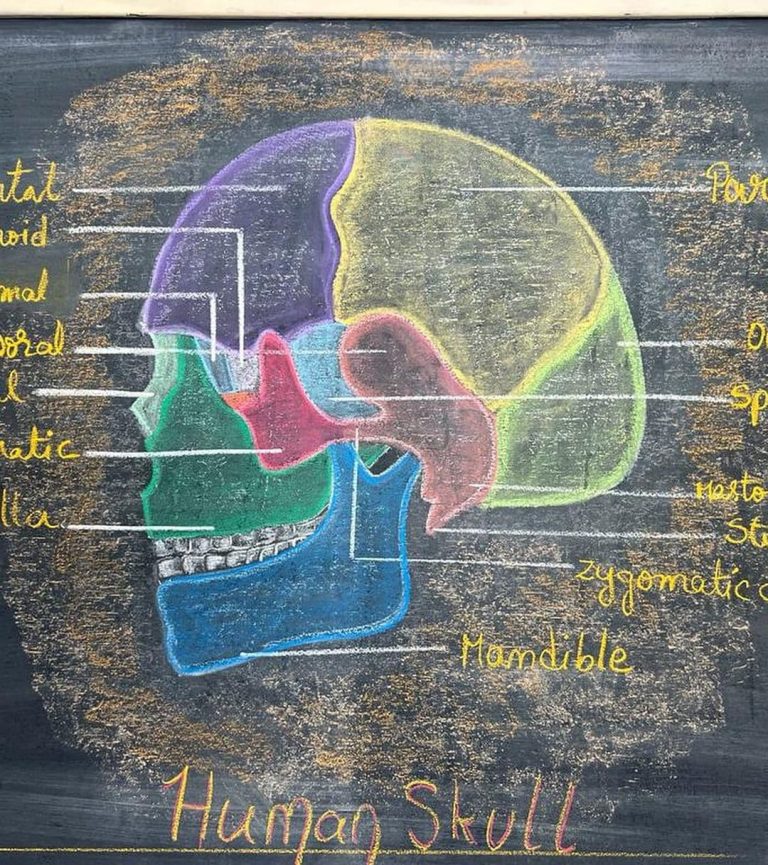 ntal
noid
mal
poral
l
matic
lla
Par
O
Sp
Masto
Sty
zygomatic a
Mandible
Human Skull